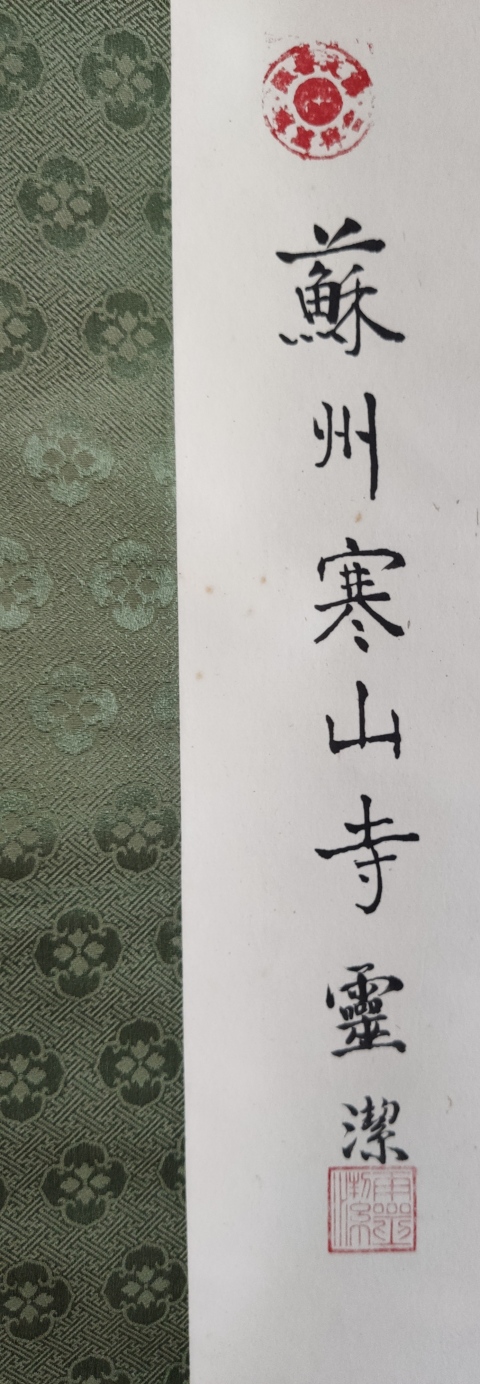 蘇州寒山寺靈潔